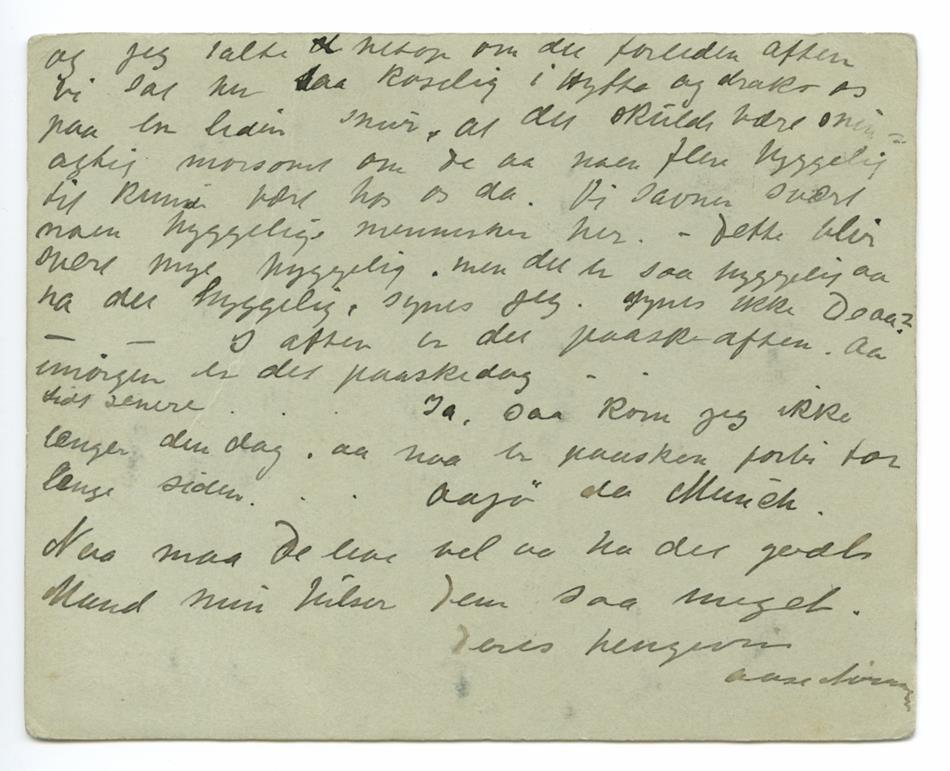 og jeg talte netop om det forleden aften
vi sat her saa koselig i Hytta og drakk os
paa en liden snur, at det skulde være
agtig morsomt om De aa noen flere hyggelig
til kunde vært hos os da. Vi savner svært
noen hyggelige mennesker her. – Dette blir
svært mye hyggelig. men det er saa hyggelig aa
ha det hyggelig, synes jeg. synes ikke De aa?
— — I aften er det paaske-aften. Aa
imorgen er det paaskedag - .
tids senere . . . Ja, saa kom jeg ikke
længer den dag. aa naa er paasken forbi for
længe siden. . . aajö da Munch.
Naa maa De leve vel aa ha det godt
Mand min hilser Dem saa meget.
Deres hengivne
Aase